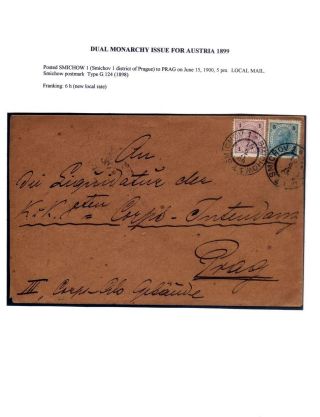 DUAL MONARCHY ISSUE FOR AUSTRIA 1899
Posted SMICHOW 1 (Smichov 1 district of Prague) to PRAG on June 15, 1900, 5 pm. LOCAL MAIL.
Smichow postmark Type G 124 (1898)
Franking: 6 h (new local rate)
An
die Liquidatur der
K.K. 8ten Corps-Intendanz
Prag
III, Corps-Cdo Gebäude